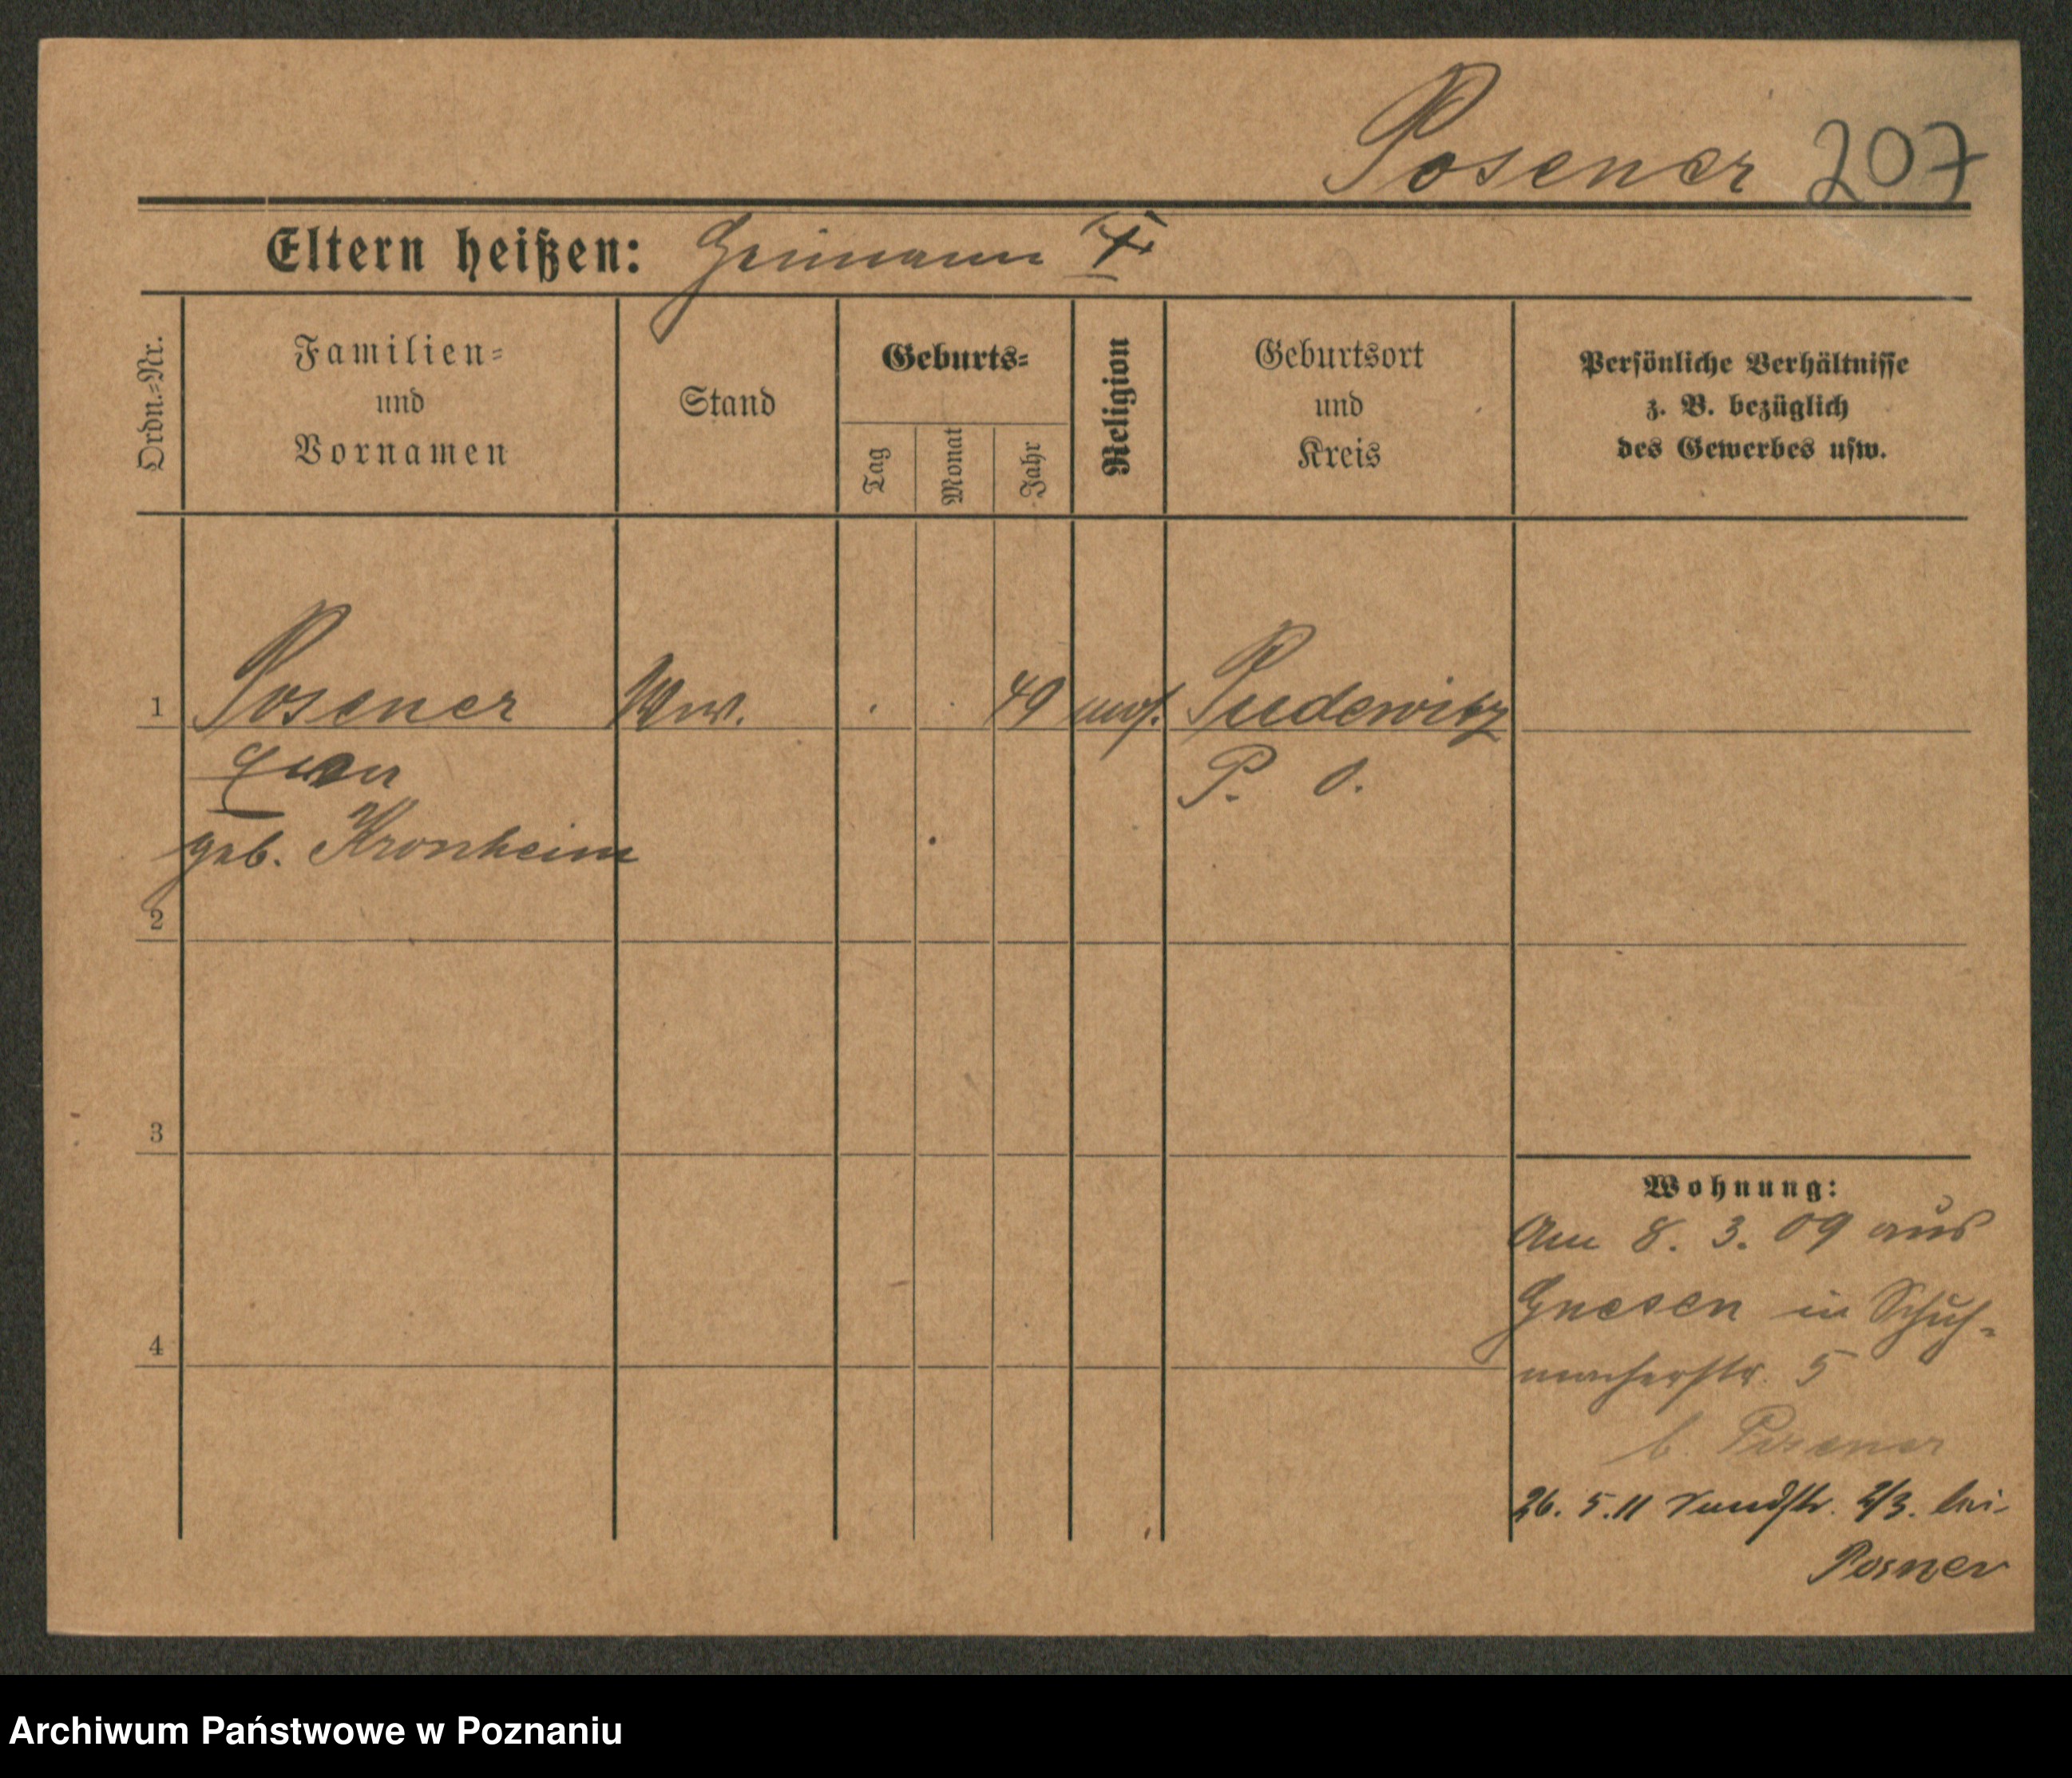 Posener 207
Eltern heißen:
Ordn.-Nr.
Familien-
und
Vornamen
Stand
Geburts-
Tag
Monat
Jahr
Religion
Geburtsort
und
Kreis
Persönliche Verhältnisse
z. B. bezüglich
des Gewerbes usw.
1 Posener Ww. 49 mos. Pudewitz
P. O.
geb. Kronheim
2
3
4
Wohnung:
Am 8. 3. 09 aus
Gnesen in Schuh-
macherstr. 5
b. Posener
26. 5. 11 2/3. bei
Posner
Archiwum Państwowe w Poznaniu